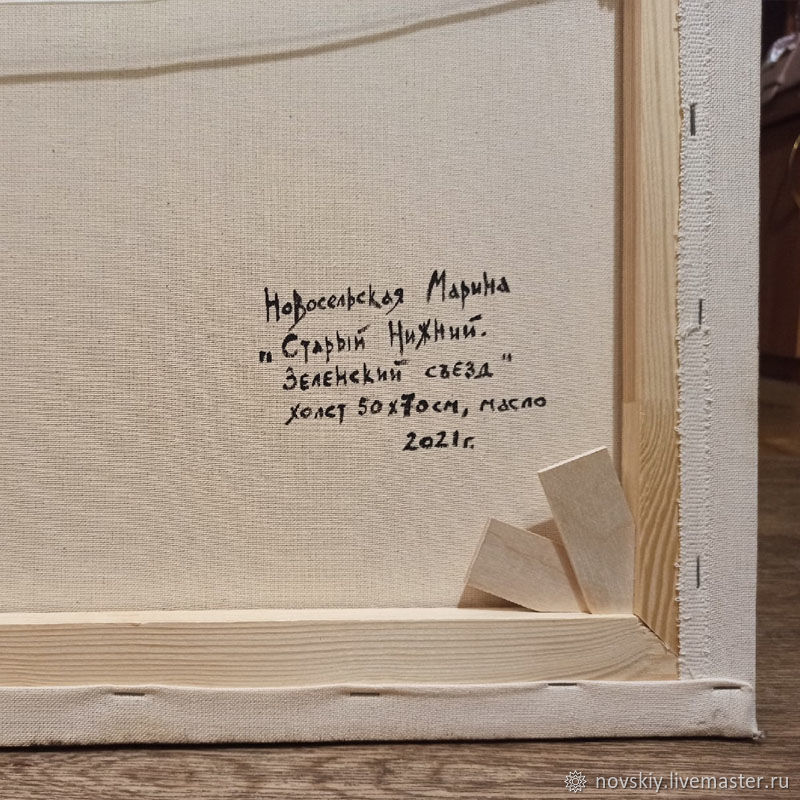 Новосельская Марина
"Старый Нижний.
Зеленский съезд"
холст 50х70см, масло
2021г.
novskiy.livemaster.ru